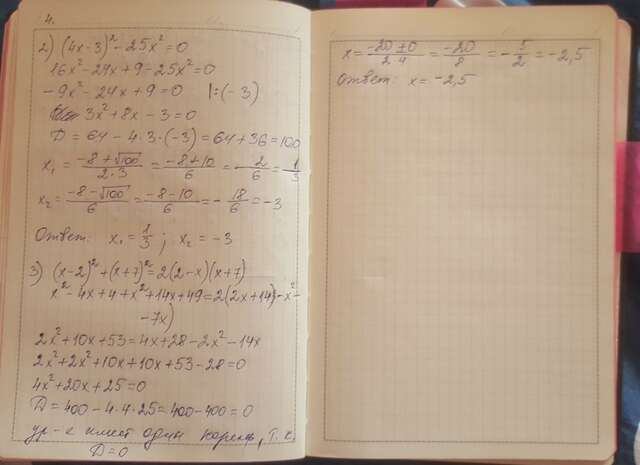 4.
2) (4x-3)²-25x²=0
16x²-24x+9-25x²=0
-9x²-24x+9=0 |:(-3)
3x²+8x-3=0
D=64-4·3·(-3)=64+36=100
x₁=(-8+√100)/(2·3)=(-8+10)/6=2/6=1/3
x₂=(-8-√100)/6=(-8-10)/6=-18/6=-3
Ответ: x₁=1/3; x₂=-3
3) (x-2)²+(x+7)²=2(2-x)(x+7)
x²-4x+4+x²+14x+49=2(2x+14-x²-
-7x)
2x²+10x+53=4x+28-2x²-14x
2x²+2x²+10x+10x+53-28=0
4x²+20x+25=0
D=400-4·4·25=400-400=0
ур-е имеет один корень, т.к.
D=0
x=(-20±0)/(2·4)=-20/8=-5/2=-2,5
Ответ: x=-2,5